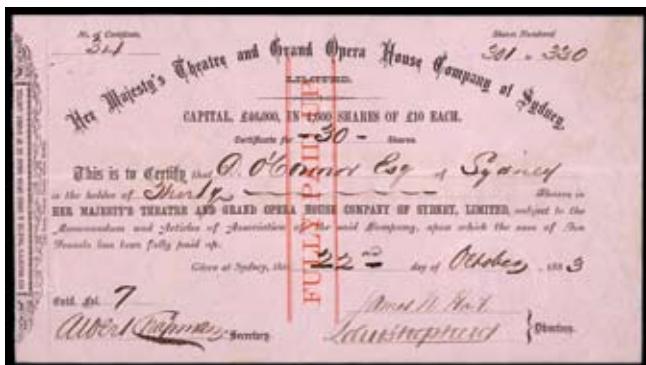 No. of Certificate,
Shares Numbered
301 - 330
Her Majesty's Theatre and Grand Opera House Company of Sydney,
LIMITED.
CAPITAL, £40,000, IN 4,000 SHARES OF £10 EACH.
Certificate for -30- Shares.
This is to Certify that D. O'Connor Esq of Sydney
is the holder of Thirty Shares in
HER MAJESTY'S THEATRE AND GRAND OPERA HOUSE COMPANY OF SYDNEY, LIMITED, subject to the
Memorandum and Articles of Association of the said Company, upon which the sum of Ten
Pounds has been fully paid up.
Given at Sydney, this 22nd day of October, 1883
FULLY PAID UP
7
Albert Chapman Secretary.
Directors.